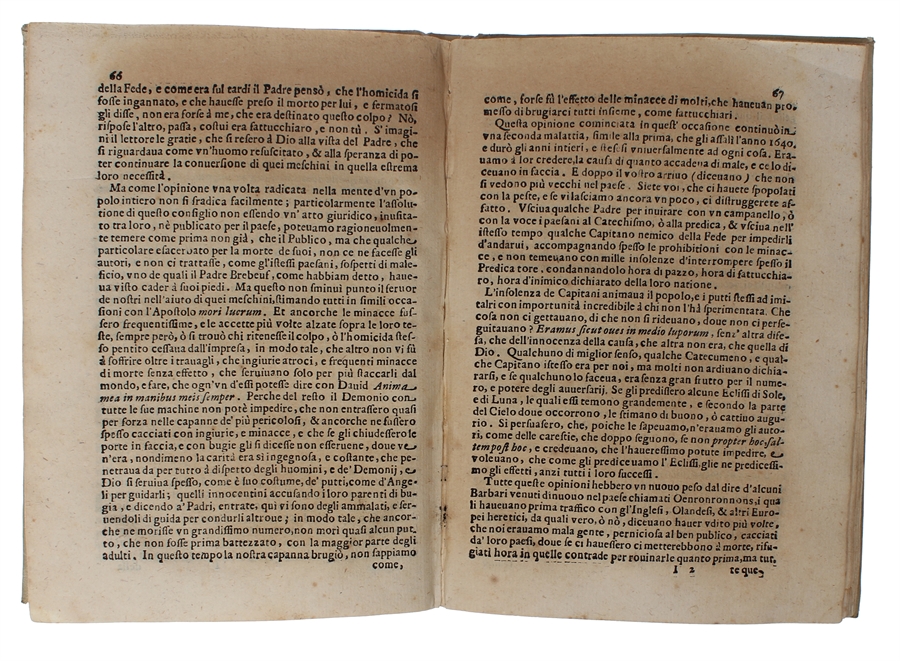 66
della Fede, e come era ſul tardi il Padre pensò, che l'homicida ſi
foſſe ingannato, e che haueſſe preſo il morto per lui, e fermatoſi
gli diſſe, non era forſe à me, che era deſtinato queſto colpo? Nò,
riſpoſe l'altro, paſſa, coſtui era fattucchiaro, e non tù. S'imagi-
ni il lettore le gratie, che ſi reſero à Dio alla viſta del Padre, che
ſi riguardaua come vn'huomo reſuſcitato, & alla ſperanza di po-
ter continuare la conuerſione di quei meſchini in quella eſtrema
loro neceſſità.
Ma come l'opinione vna volta radicata nella mente d'vn po-
polo intiero non ſi ſradica facilmente; particolarmente l'aſſolu-
tione di queſto conſiglio non eſſendo vn' atto giuridico, inuſita-
to tra loro, nè publicato per il paeſe, poteuamo ragioneuolmen-
te temere come prima non già, che il Publico, ma che qualche
particolare eſacerbato per la morte de ſuoi, non ce ne faceſſe gli
autori, e non ci trattaſſe, come gl'iſteſſi paeſani, ſoſpetti di male-
ficio, vno de quali il Padre Brebeuf, come habbiam detto, haue-
ua viſto cader à ſuoi piedi. Ma queſto non ſminuì punto il feruor
de noſtri nell'aiuto di quei meſchini, ſtimando tutti in ſimili occa-
ſioni con l'Apoſtolo mori lucrum. Et ancorche le minacce fuſ-
ſero frequentiſſime, e le accette più volte alzate ſopra le loro te-
ſte, ſempre però, ò ſi trouò chi riteneſſe il colpo, ò l'homicida ſteſ-
ſo pentito ceſſaua dall'impreſa, in modo tale, che altro non vi fù
à ſoffrire oltre i trauagli, che ingiurie atroci, e frequenti minacce
di morte senza effetto, che ſeruiuano ſolo per più ſtaccarli dal
mondo, e fare, che ogn'vn d'eſſi poteſſe dire con Dauid Anima
mea in manibus meis ſemper. Perche del reſto il Demonio con
tutte le ſue machine non potè impedire, che non entraſſero quaſi
per forza nelle capanne de' più pericoloſi, & ancorche ne fuſſero
ſpeſſo cacciati con ingiurie, e minacce, e che ſe gli chiudeſſero le
porte in faccia, e con bugie gli ſi diceſſe non eſſeruene, doue ve
n'era, nondimeno la carità era sì ingegnoſa, e coſtante, che pe-
netraua da per tutto à diſpetto degli huomini, e de' Demonij, e
Dio ſi ſeruiua ſpeſſo, come è ſuo coſtume, de' putti, come d'Ange-
li per guidarli; quelli innocentini accuſando i loro parenti di bu-
gia, e dicendo a' Padri, entrate, qui vi ſono degli ammalati, e ſer-
uendoli di guida per condurli altroue; in modo tale, che ancor-
che ne moriſſe vn grandiſſimo numero, non morì quaſi alcun put-
to, che non foſſe prima battezzato, con la maggior parte degli
adulti. In queſto tempo la noſtra capanna brugiò, non ſappiamo
come,
67
come, forſe fù l'effetto delle minacce di molti, che haueuan pro-
meſſo di brugiarci tutti inſieme, come fattucchiari.
Queſta opinione cominciata in queſt' occaſione continuò in
vna ſeconda malattia, ſimile alla prima, che gli aſſalì l'anno 1640.
e durò gli anni intieri, e ſteſeſi vniuerſalmente ad ogni coſa. Era-
uamo à lor credere, la cauſa di quanto accadeua di male, e ce lo di-
ceuano in faccia. E doppo il voſtro arriuo (diceuano) che non
ſi vedono più vecchi nel paeſe. Siete voi, che ci hauete ſpopolati
con la peſte, e ſe vi laſciamo ancora vn poco, ci diſtruggerete af-
fatto. Vſciua qualche Padre per inuitare con vn campanello, ò
con la voce i paeſani al Catechiſmo, ò alla predica, & vſciua nell'
iſteſſo tempo qualche Capitano nemico della Fede per impedirli
d'andarui, accompagnando ſpeſſo le prohibitioni con le minac-
ce, e non temeuano con mille inſolenze d'interrompere ſpeſſo il
Predica tore, condannandolo hora di pazzo, hora di fattucchia-
ro, hora d'inimico dichiarato della loro natione.
L'inſolenza de Capitani animaua il popolo, e i putti ſteſſi ad imi-
talri con importunità incredibile à chi non l'hà ſperimentata. Che
coſa non ci gettauano, di che non ſi rideuano, doue non ci perſe-
guitauano? Eramus ſicut oues in medio luporum, ſenz' altra dife-
ſa, che dell'innocenza della cauſa, che altra non era, che quella di
Dio. Qualchuno di miglior ſenſo, qualche Catecumeno, e qual-
che Capitano iſteſſo era per noi, ma molti non ardiuano dichia-
rarſi, e ſe qualchuno lo faceua, era ſenza gran frutto per il nume-
ro, e potere degli auuerſarij. Se gli prediſſero alcune Ecliſſi di Sole,
e di Luna, le quali eſſi temono grandemente, e ſecondo la parte
del Cielo doue occorrono, le ſtimano di buono, ò cattiuo augu-
rio. Si perſuaſero, che, poiche le ſapeuamo, n'erauamo gli auto-
ri, come delle careſtie, che doppo ſeguono, ſe non propter hoc, ſal-
tem poſt hoc, e credeuano, che l'haureſſimo potute impedire, e
voleuano, che come gli prediceuamo l'Ecliſſi, glie ne prediceſſi-
mo gli effetti, anzi tutti i loro ſucceſſi.
Tutte queſte opinioni hebbero vn nuouo peſo dal dire d'alcuni
Barbari venuti di nuouo nel paeſe chiamati Oenronronnons, i qua
li haueuano prima traffico con gl'Ingleſi, Olandeſi, & altri Euro-
pei heretici, da quali vero, ò nò, diceuano hauer vdito più volte,
che noi erauamo mala gente, pernicioſa al ben publico, cacciati
da' loro paeſi, doue ſe ci haueſſero ci metterebbono à morte, rifu-
giati hora in quelle contrade per rouinarle quanto prima, ma tut-
I 2 te que-